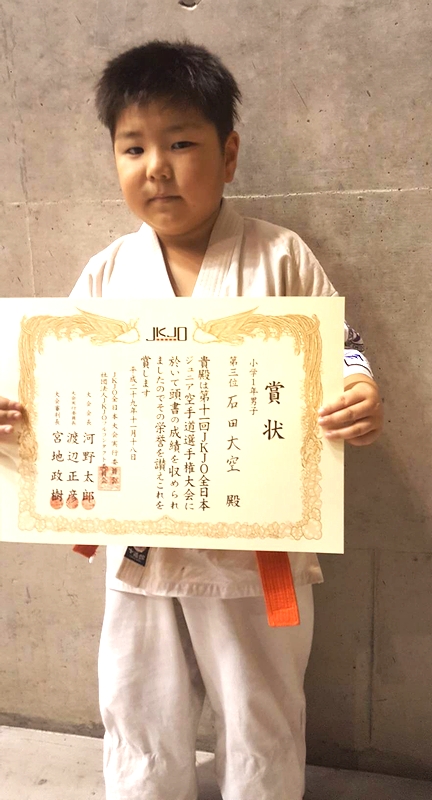 JKJO
賞状
小学1年男子
第三位 石田大空 殿
貴殿は第十一回JKJO全日本
ジュニア空手道選手権大会に
於いて頭書の成績を収められ
ましたのでその栄誉を讃えこれを
賞します
平成二十九年十一月十八日
JKJO全日本大会実行委員会
社団法人JKJOフルコンタクト委員会
大会会長 河野太郎
渡辺正彦
大会審判長 宮地政樹